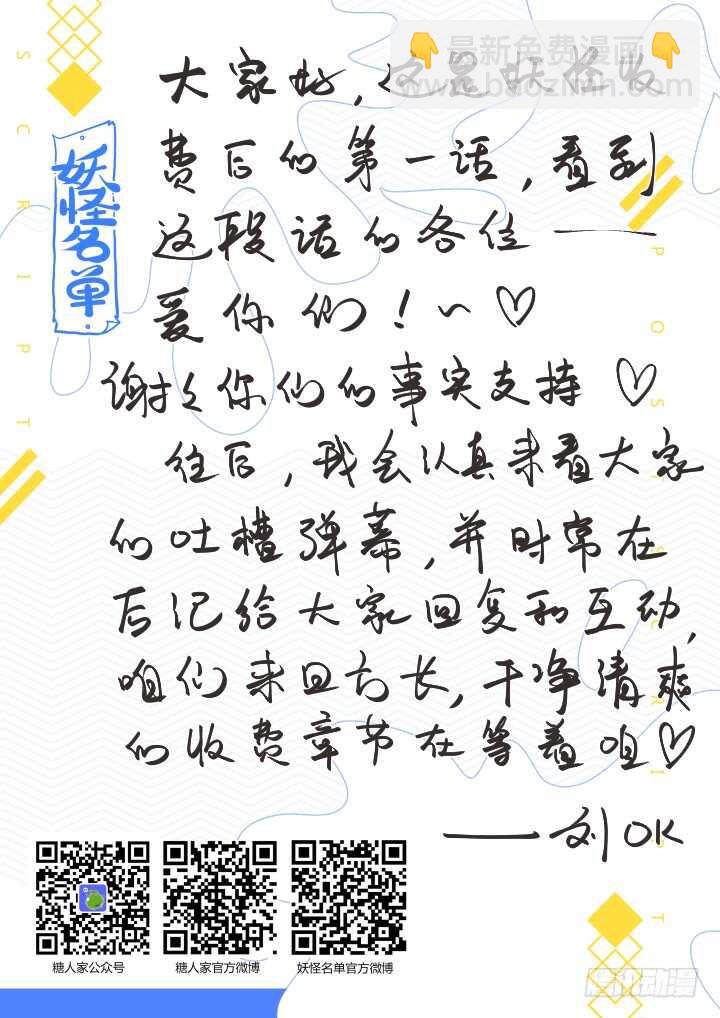 👇最新免费漫画👇
www.baozimh.com
SCRIPT
妖怪名单
大家好,这是妖怪收
费后的第一话,看到
这段话的各位——
爱你们!~♡
谢谢你们的事实支持♡
往后,我会认真来看大家
的吐槽弹幕,并时常在
后记给大家回复和互动,
咱们来日方长,干净清爽
的收费章节在等着咱♡
——刘OK
POSTSCRIPT
糖人家公众号
糖人家官方微博
妖怪名单官方微博
腾讯动漫